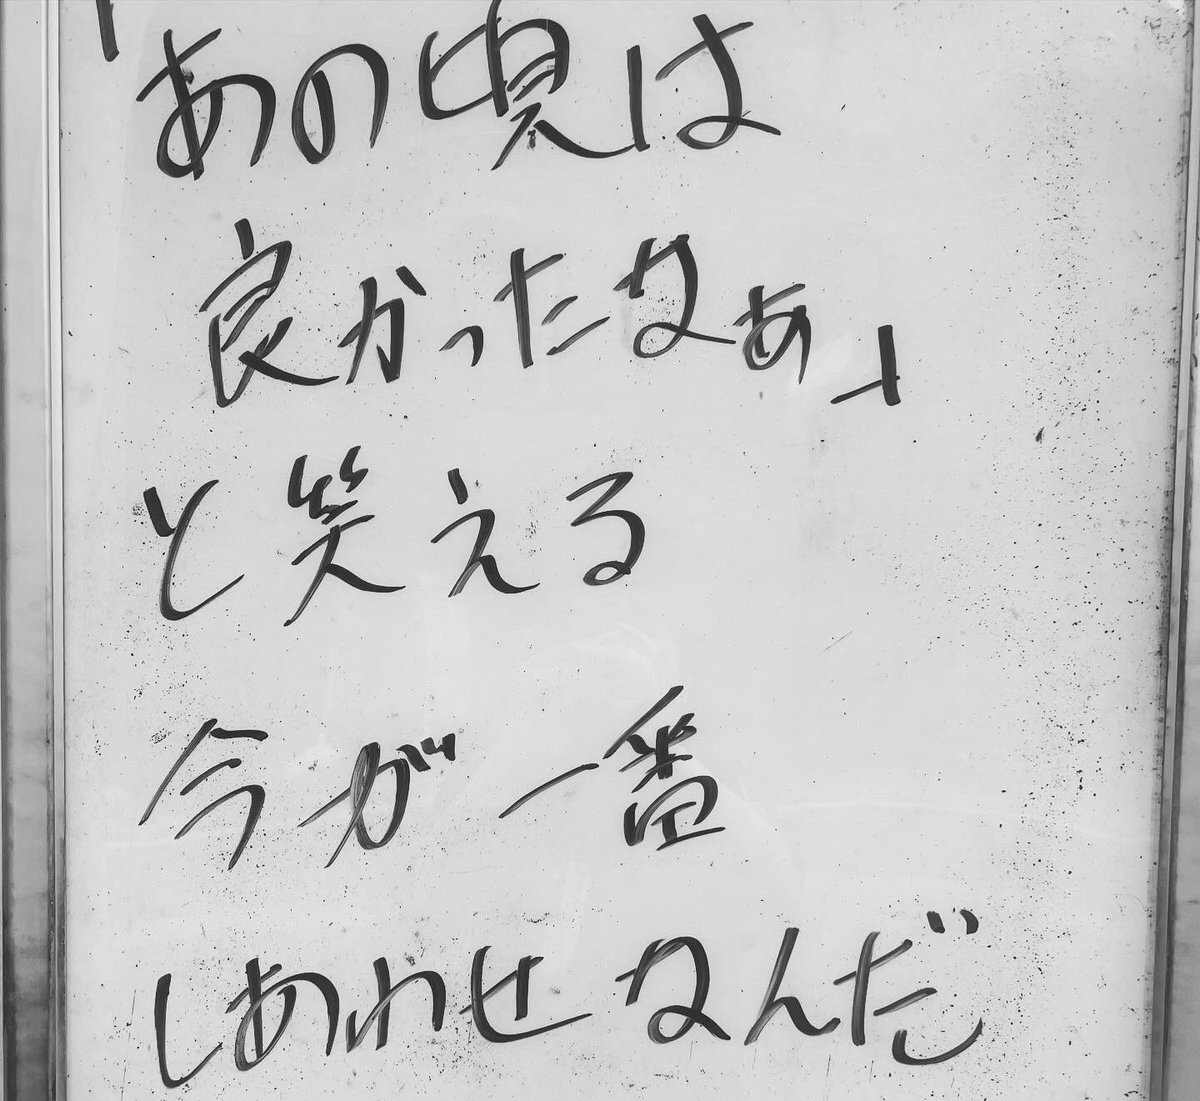 「あの頃は
良かったなぁ」
と笑える
今が一番
しあわせなんだ